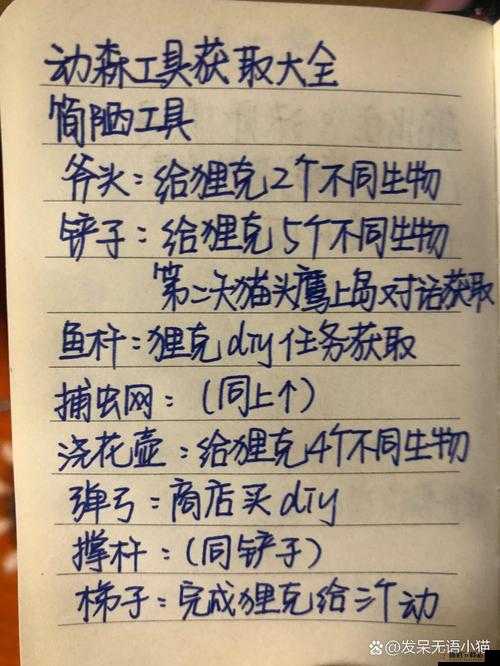 动森工具获取大全
简陋工具
斧头：给狸克2个不同生物
铲子：给狸克5个不同生物
第二天猫头鹰上岛对话获取
鱼杆：狸克diy任务获取
捕虫网：（同上个）
浇花壶：给狸克4个不同生物
弹弓：商店买diy
撑杆：（同铲子）
梯子：完成狸克给三个动
知乎 @发呆无语小猫